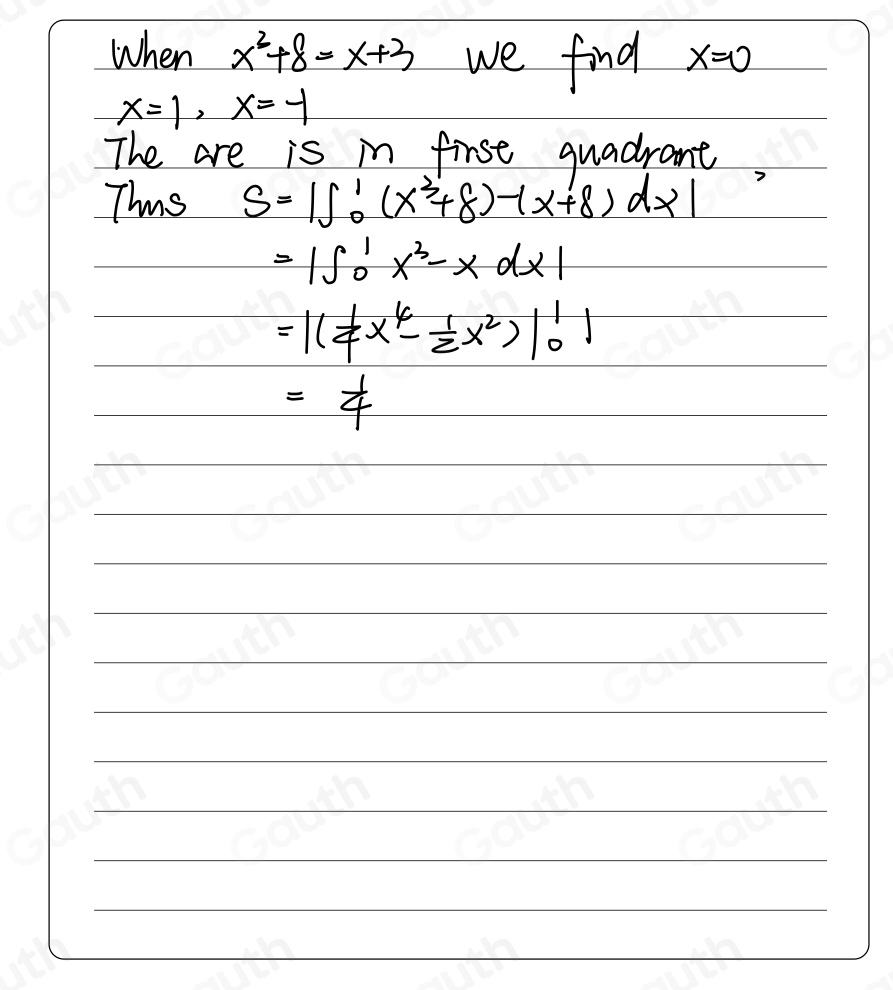 When x³+8=x+3 we find x=0
x=1, x=-1
The are is in first quadrant,
Thus S=|∫₀¹(x³+8)-(x+8)dx|
=|∫₀¹ x³-x dx|
=|(1/4x⁴-1/2x²)|₀¹|
= 1/4
Gauth